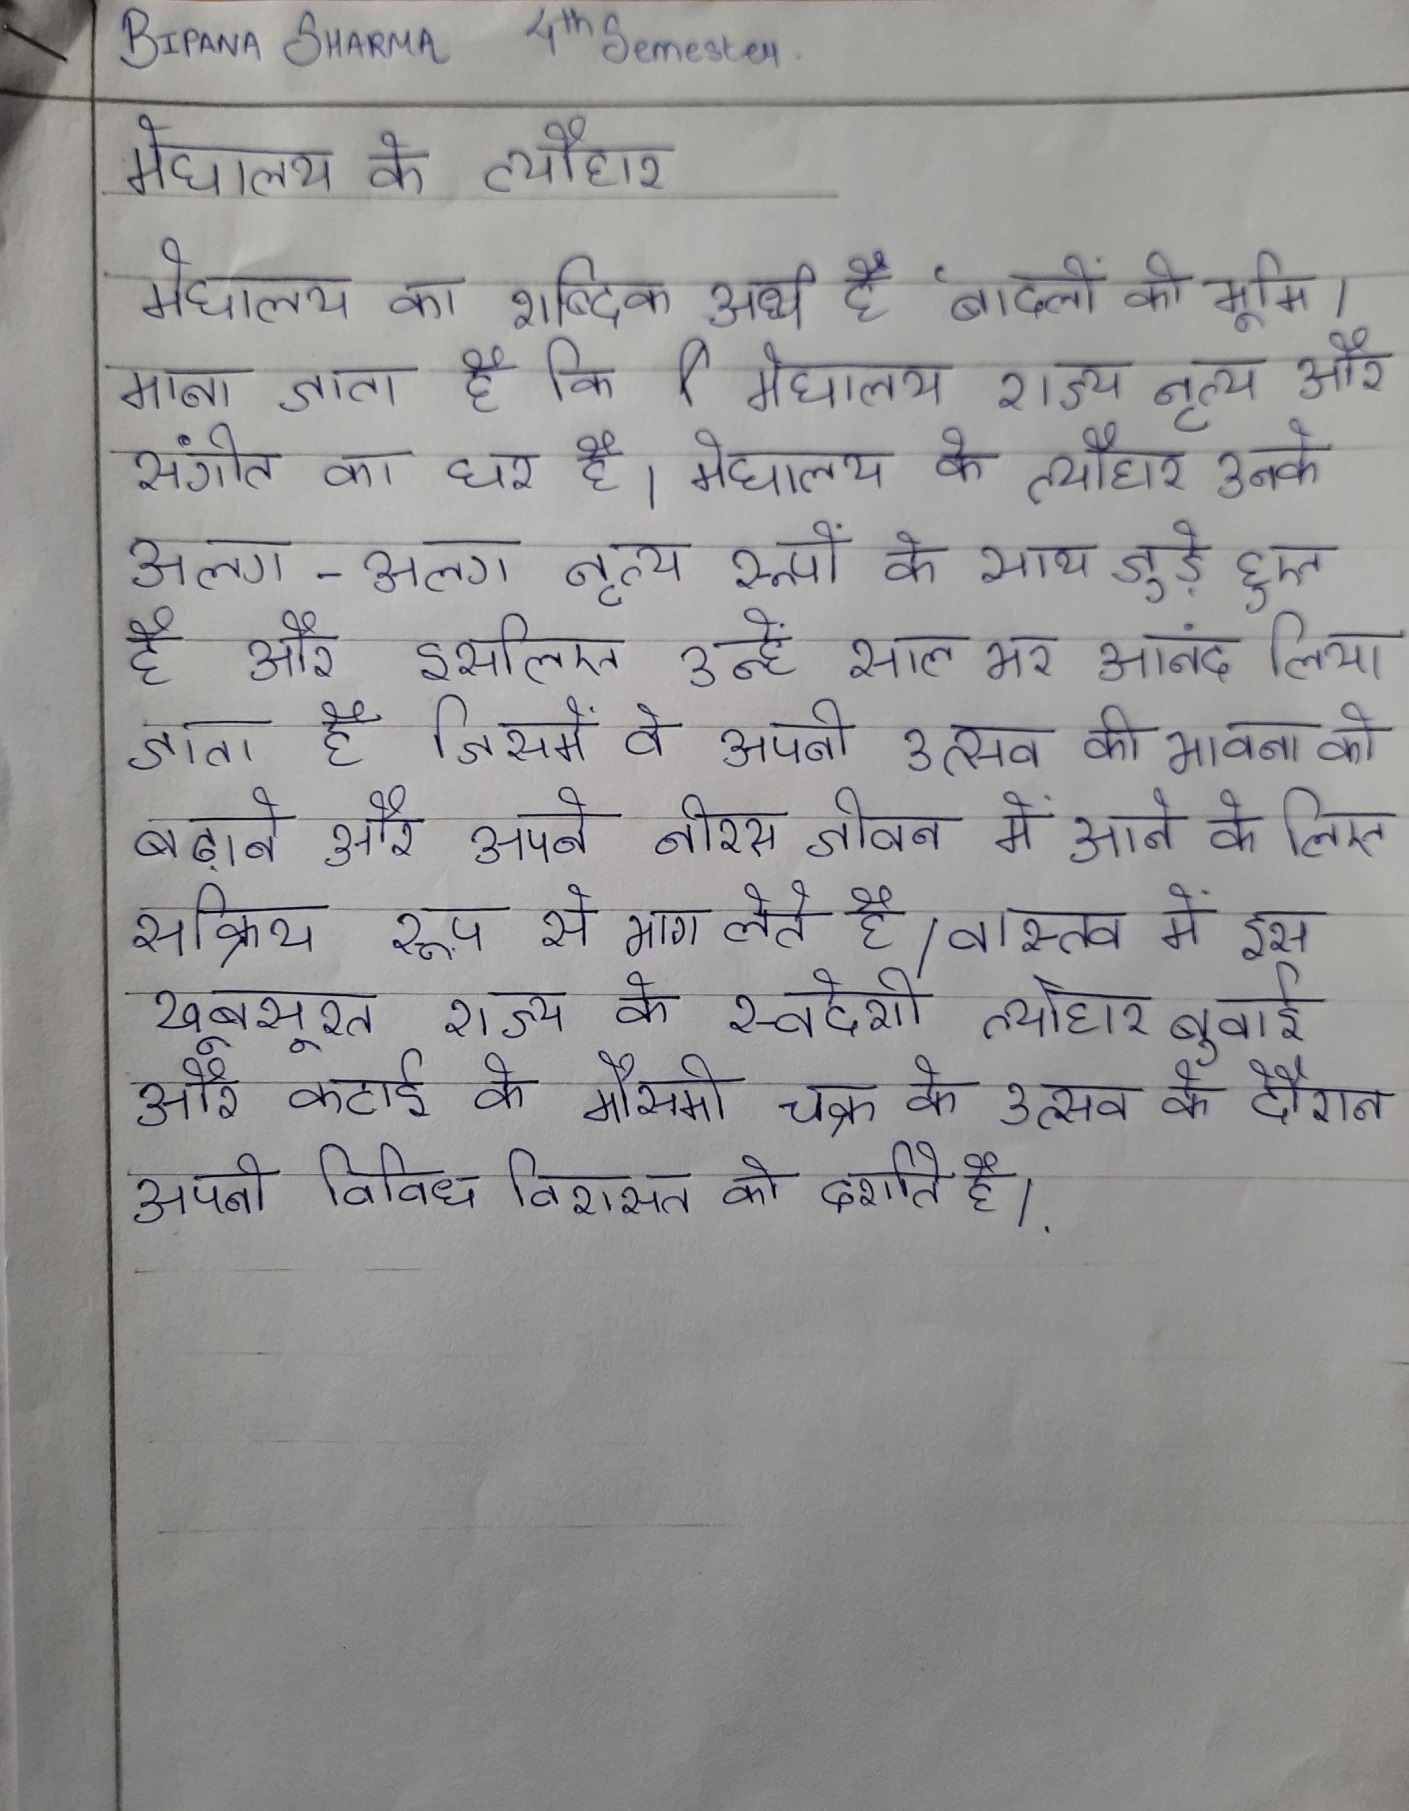 BIPANA SHARMA 4th Semester.
मेघालय के त्यौहार
मेघालय का शब्दिक अर्थ है 'बादलों की भूमि।
माना जाता है कि मेघालय राज्य नृत्य और
संगीत का घर है। मेघालय के त्यौहार उनके
अलग - अलग नृत्य रूपों के साथ जुड़े हुए
है और इसलिए उन्हें साल भर आनंद लिया
जाता है जिसमें वे अपनी उत्सव की भावना को
बढ़ाने और अपने नीरस जीवन में आने के लिए
सक्रिय रूप से भाग लेते है। वास्तव में इस
खूबसूरत राज्य के स्वदेशी त्योहार बुवाई
और कटाई के मौसमी चक्र के उत्सव के दौरान
अपनी विविध विरासत को दर्शाते है।.